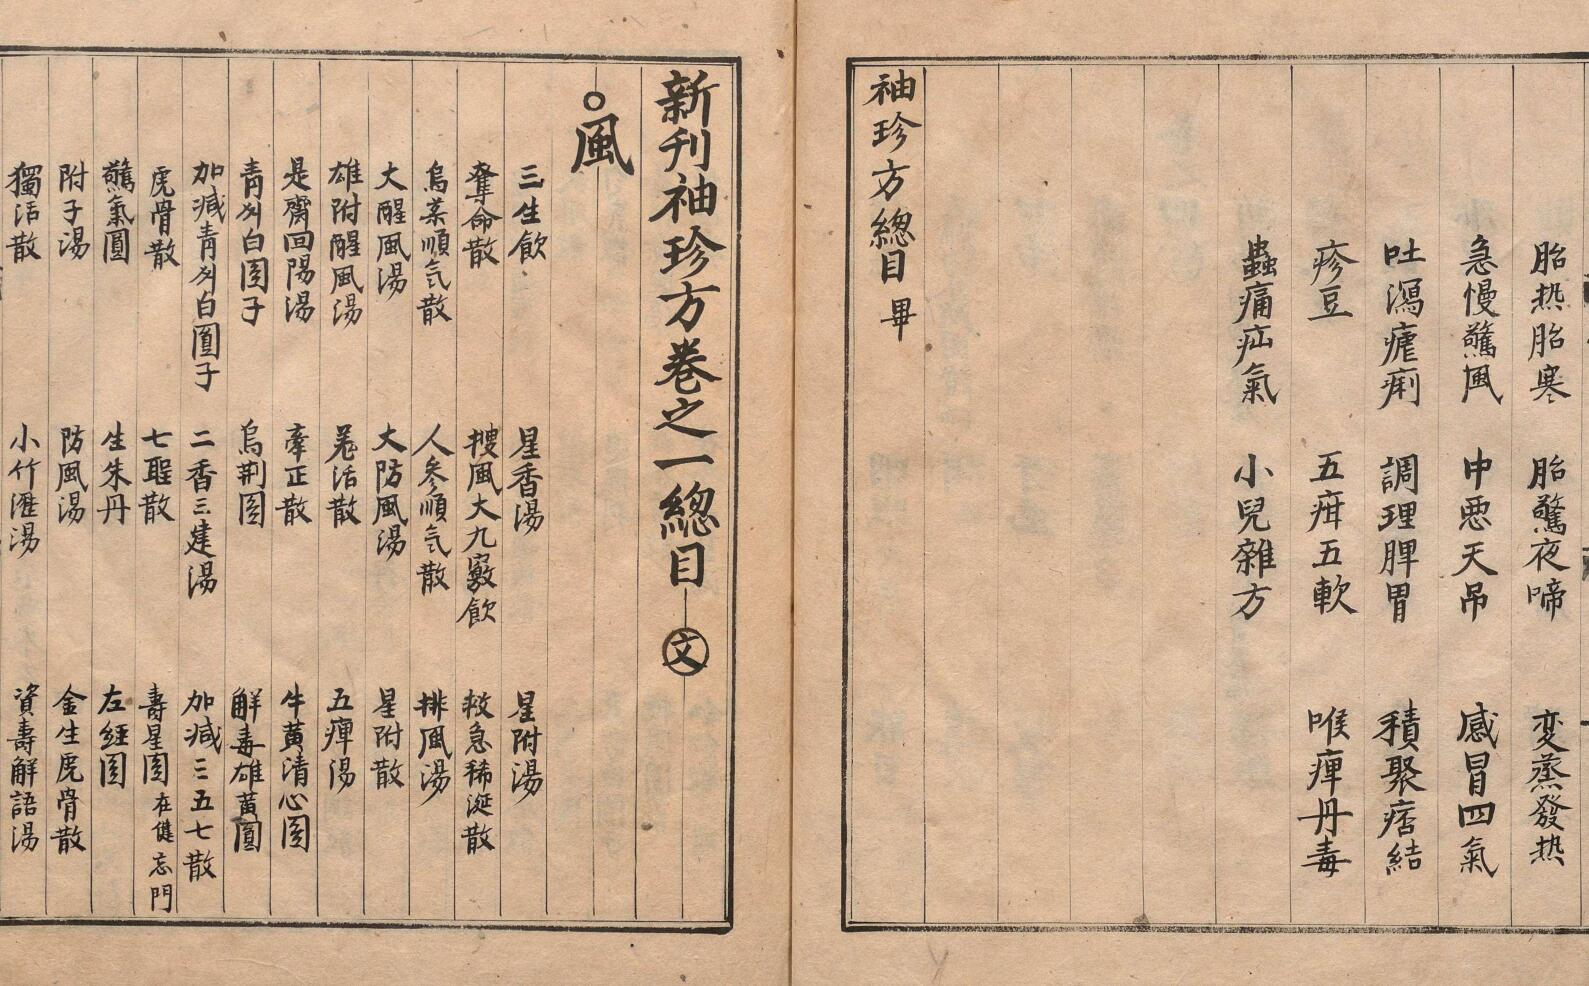 胎热胎寒 胎驚夜啼 変蒸發热
急慢驚風 中悪天吊 感冒四氣
吐瀉瘧痢 調理脾胃 積聚痞結
疹豆 五疳五軟 喉痺丹毒
蟲痛疝氣 小兒雜方
袖珍方總目 畢
新刊袖珍方巻之一總目 文
○風
三生飲 星香湯 星附湯
奪命散 搜風大九竅飲 救急稀涎散
烏薬順気散 人参順気散 排風湯
大醒風湯 大防風湯 星附散
雄附醒風湯 羗活散 五痺湯
是齋回陽湯 牽正散 牛黄清心圎
青州白圎子 烏荆圎 解毒雄黄圓
加减青州白圓子 二香三建湯 加减三五七散
虎骨散 七聖散 壽星圎 在健忘門
驚氣圓 生朱丹 左経圎
附子湯 防風湯 金生虎骨散
獨活散 小竹瀝湯 資壽解語湯